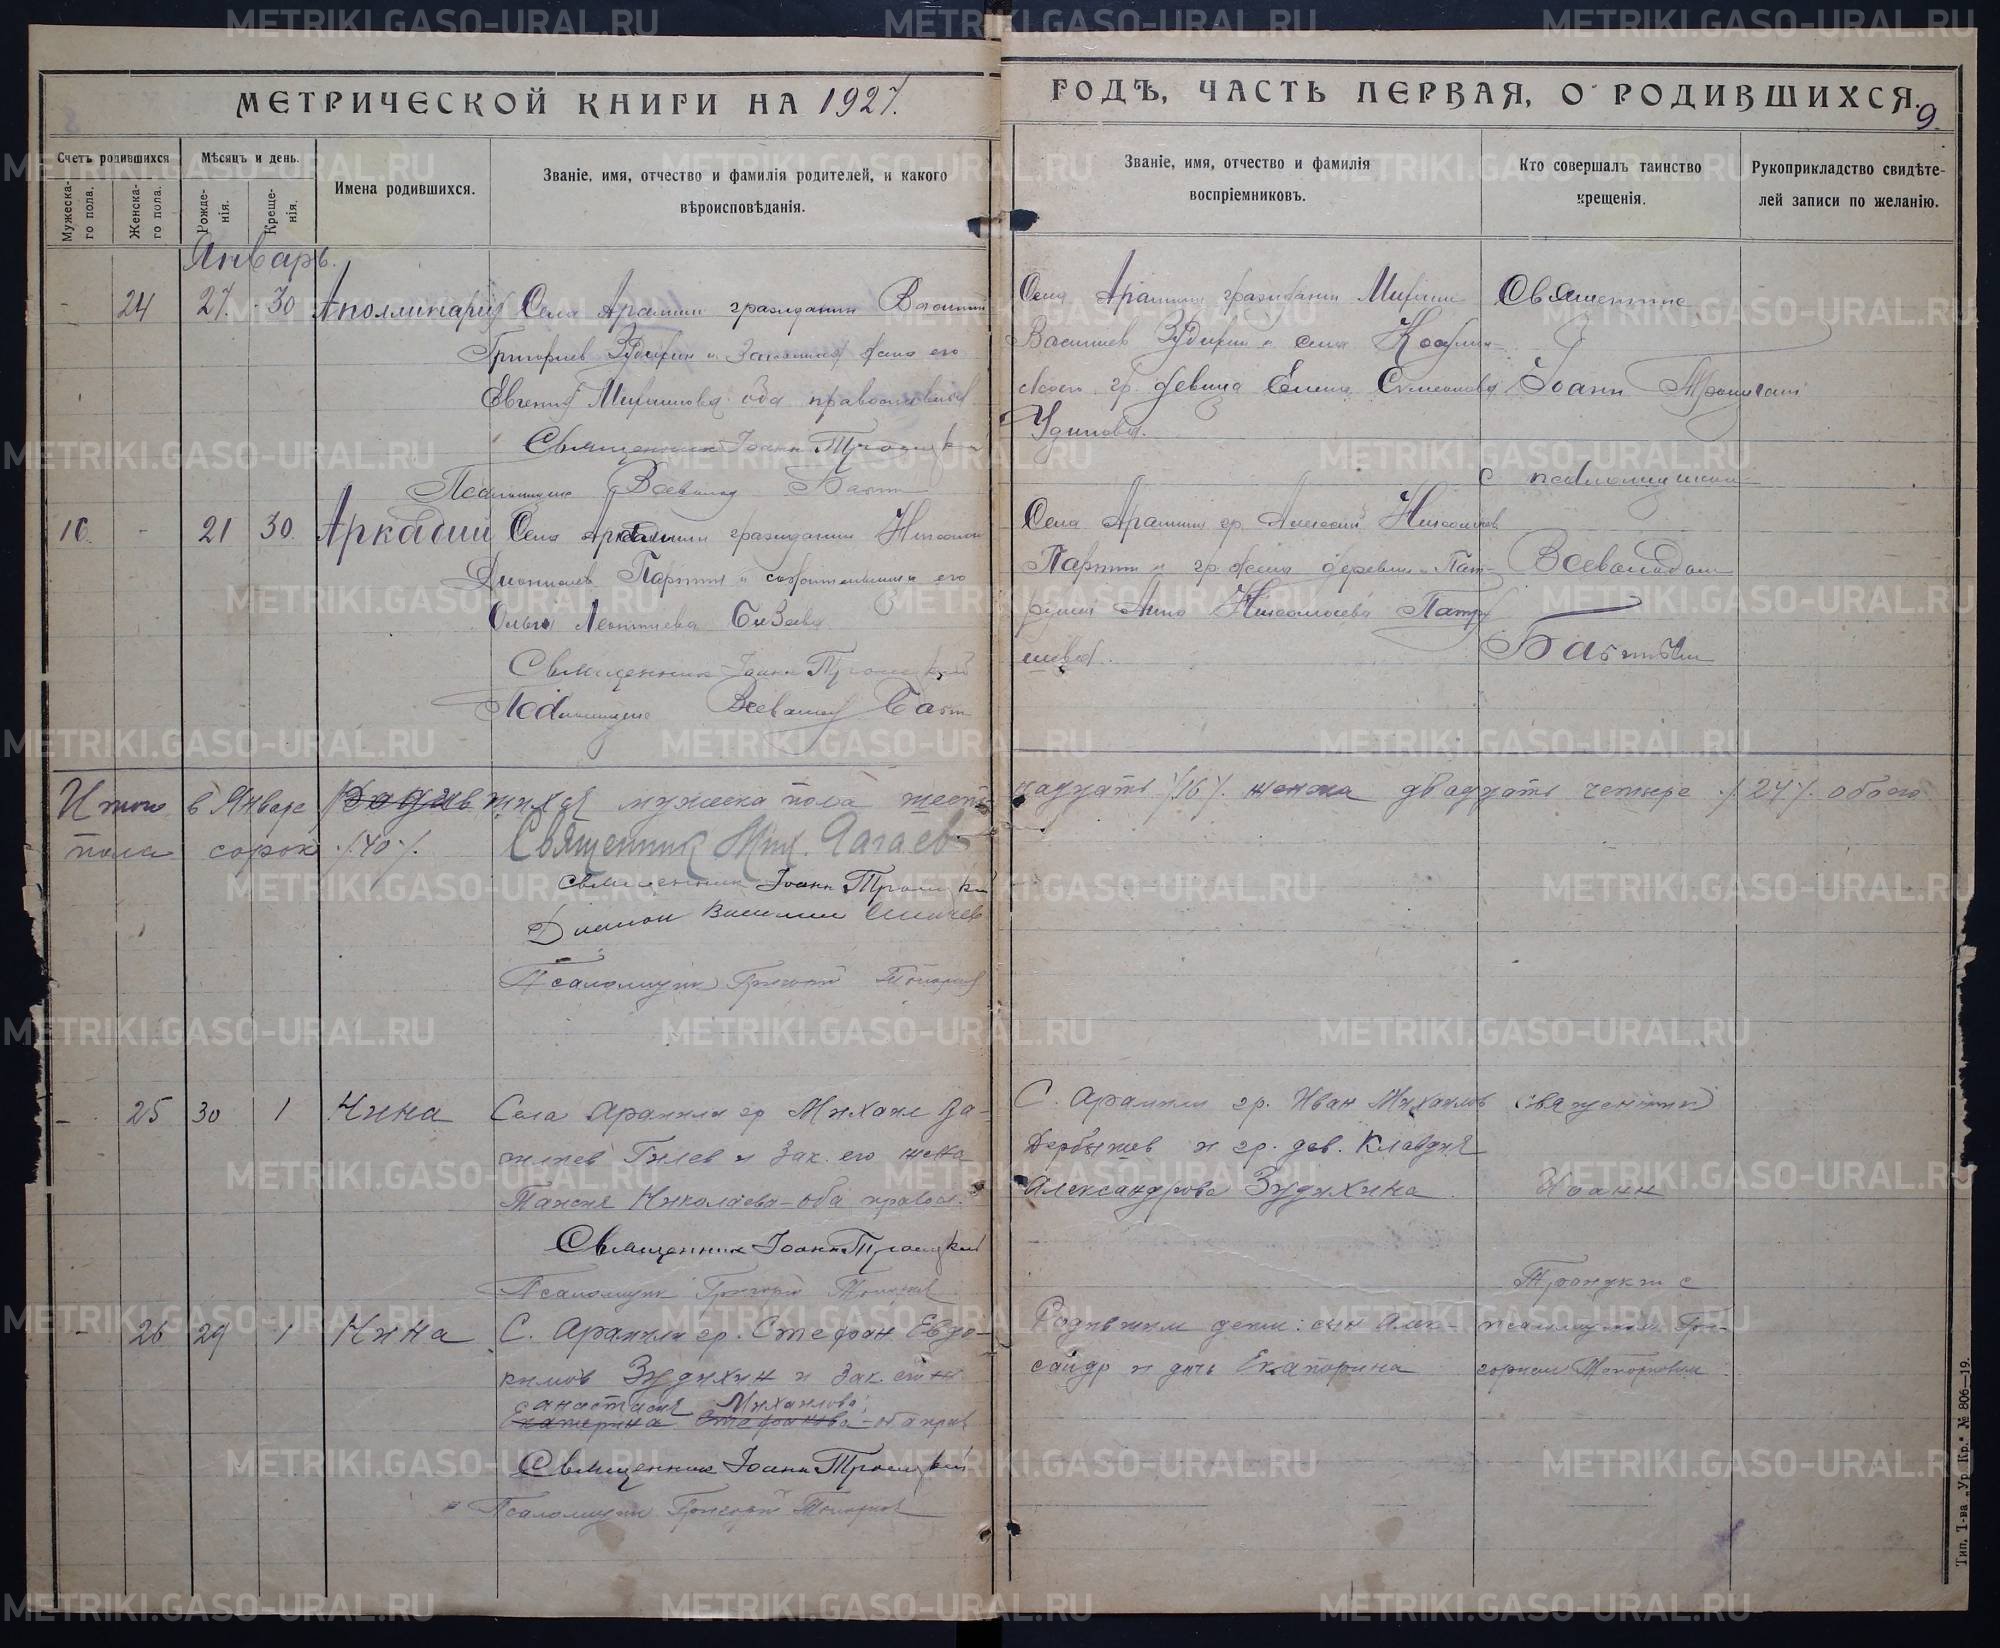 МЕТРИЧЕСКОЙ КНИГИ НА 1927.
ГОДЪ, ЧАСТЬ ПЕРВАЯ, О РОДИВШИХСЯ.
9.
Счетъ родившихся
Мужеска-
го пола.
Женска-
го пола.
Мѣсяцъ и день.
Рожде-
нія.
Креще-
нія.
Имена родившихся.
Званіе, имя, отчество и фамилія родителей, и какого
вѣроисповѣданія.
Званіе, имя, отчество и фамилія
воспріемниковъ.
Кто совершалъ таинство
крещенія.
Рукоприкладство свидѣте-
лей записи по желанію.
Январь.
- 24 27. 30 Аполлинария
Села Арамили гражданин Василий
Григориев Зудихин и Законная жена его
Евгения оба православные
Священник Иоанн Троицкий
Псаломщик Всеволод
Села Арамили гражданин
Васильев Зудихин и села
гр. девица Елена Симеонова
Священник
Иоанн
с псаломщиком
Всеволодом
10. - 21 30. Аркадий
Села гражданин
Партин и сожительница его
Ольга Леонтиева
Священник Иоанн Троицкий
Псаломщик Всеволод
Села Арамили гр. Алексей Николаев
Партин и гр. жена деревни Пат-
Анна Николаева
Итого в Январе Родившихся мужеска пола шест-
надцать /16/. женска двадцать четыре /24/. обоего
пола сорок /40/.
Священник Мих.
Священник Иоанн Троицкий
Диакон Василий
Псаломщик Григорий Топорков
- 25 30 1 Нина
Села Арамили гр Михаил Да-
нилев Гилев и Зак. его жена
Таисия Николаева - оба правосл.
Священник Иоанн Троицкий
Псаломщик Григорий Топорков
С. Арамили гр. Иван Михаилов
Дербышев и гр. дев. Клавдия
Александрова Зудихина
Священник
Иоанн
Троицкий с
псаломщиком Гри-
горием Топорковым
- 26 29 1 Нина
С. Арамили гр. Стефан Евдо-
кимов Зудихин и Зак.
Анастасия Михаилова
Екатерина Стефанова - оба прав
Священник Иоанн Троицкий
Псаломщик Григорий Топорков
Родивших дети: сын Алек-
сандр и дочь Екатерина
Тип. Т-ва „Ур. Кр.“ № 806—19.
METRIKI.GASO-URAL.RU